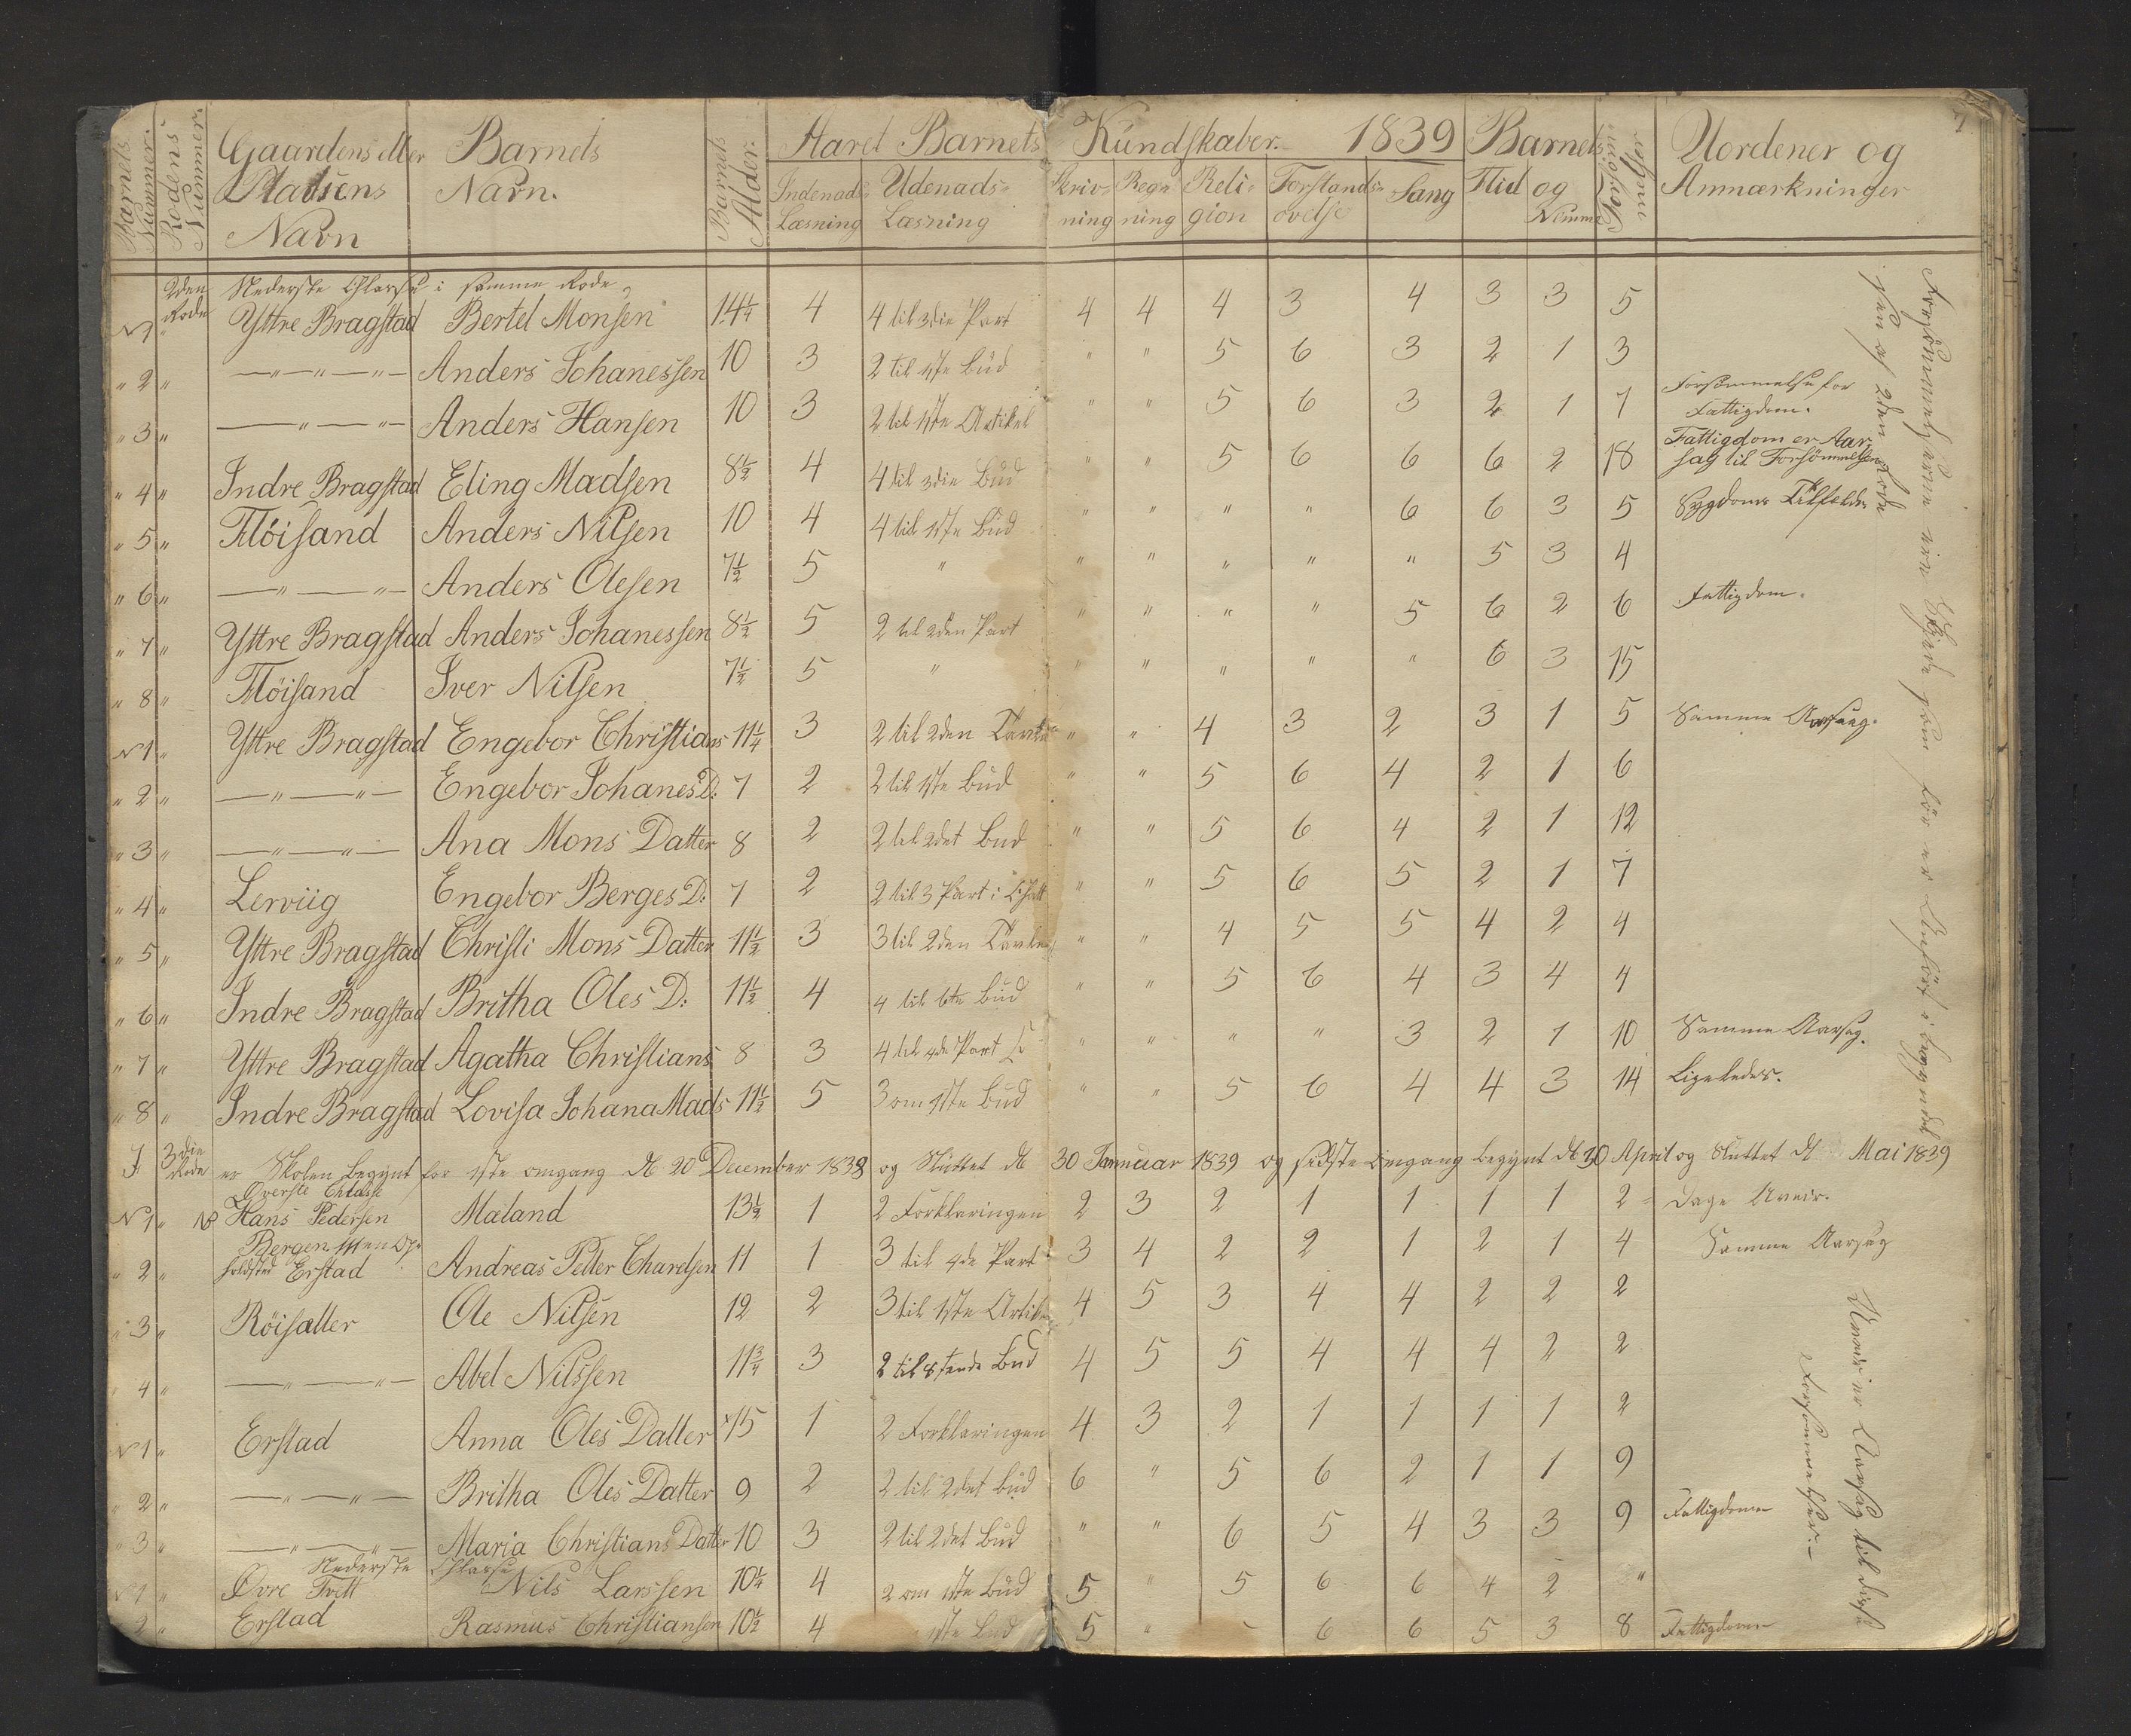 7
Barnets Nummer. Rodens Nummer. Gaardens eller Pladsens Navn Barnets Navn. Barnets Alder. Aaret Barnets Kundskaber. 1839 Barnets Forsømmelser Uordener og Anmærkninger
Indenads Læsning Udenads Læsning Skrivning Regning Religion Forstandsøvelse Sang Flid og Nemme
2den Rode Nederste Classe i samme Rode
N1 " Yttre Bragstad Bertel Monsen 14¼ 4 4 til 3die Part 4 4 4 3 4 3 3 5
" 2 " —"—"—"— Anders Johanessen 10 3 2 til 1ste Bud " " 5 6 3 2 1 3
" 3 " —"—"— Anders Hansen 10 3 2 til 1ste Artikel " " 5 6 3 2 1 7 Forsømmelse for Fattigdom.
" 4 " Indre Bragstad Eling Madsen 8½ 4 4 til 3die Bud " " 5 6 6 6 2 18 Fattigdom er Aarsag til Forsømmelsen
" 5 " Fløisand Anders Nilsen 10 4 4 til 1ste Bud " " " " 6 6 3 5 Sygdoms Tilfælde
" 6 " —"—"— Anders Olesen 7½ 5 " " " " " " 5 3 4
" 7 " Yttre Bragstad Anders Johanessen 8½ 5 2 til 2den Part " " " " 5 6 2 6 Fattigdom.
" 8 " Fløisand Iver Nilsen 7½ 5 " " " " " " 6 3 15
N1 " Yttre Bragstad Engebor Christians 11¼ 3 2 til 2den Tavle " " 4 3 2 3 1 5 Samme Aarsag.
" 2 " —"—"— Engebor Johanes D: 7 2 2 til 1ste Bud " " 5 6 4 2 1 6
" 3 " —"—"— Ana Mons Datter 8 2 2 til 2det Bud " " 5 6 4 2 1 12
" 4 " Lerviig Engebor Berges D: 7 2 2 til 3 Part i " " 5 6 5 2 1 7
" 5 " Yttre Bragstad Christi Mons Datter 11½ 3 3 til 2den Tavle " " 4 5 5 4 2 4
" 6 " Indre Bragstad Britha Oles D: 11½ 4 4 til 6te Bud " " 5 6 4 3 4 4
" 7 " Yttre Bragstad Agatha Christians 8 3 4 til 4de Part " " " " 3 2 1 10 Samme Aarsag.
" 8 " Indre Bragstad Lovisa Johana Mads 11½ 5 3 om 1ste Bud " " 5 6 4 4 3 14 Ligeledes.
I 3die Rode er Skolen begynt for 1ste omgang d 20 December 1838 og Sluttet d 30 Januar 1839 og sidste Omgang begynt d 20 April og Sluttet d Mai 1839
Øverste Classe
N1 " Hans Pedersen Maland 13½ 1 2 Forklaringen 2 3 2 1 1 1 1 2 Dage Uveir.
" 2 " Bergen men Opholdsted Erstad Andreas Petter Chardsen 11 1 3 til 4de Part 3 4 2 2 1 2 1 4 Samme Aarsag
" 3 " Röisætter Ole Nilsen 12 2 3 til 1ste Artikel 4 5 3 4 4 2 2 2
" 4 " —"—"— Abel Nilssen 11¾ 3 2 til 8tende Bud 4 5 5 4 4 4 2 2
N1 " Erstad Anna Oles Datter 15 1 2 Forklaringen 4 3 2 1 1 1 1 2
" 2 " —"—"— Britha Oles Datter 9 2 2 til 2det Bud 6 " 5 6 2 1 1 9
" 3 " —"—"— Maria Christians Datter 10 3 2 til 2det Bud " " 6 5 4 3 3 9 Fattigdom
Nederste Classe
N1 " Øvre Tvett Nils Larssen 10¼ 4 2 om 1ste Bud 5 " 5 6 6 4 2 "
2 " Erstad Rasmus Christiansen 10½ 4 1ste Bud 5 " 6 6 5 3 8 Fattigdom
Forsømmelserne ere som før er Anført i begyndelsen af 2den Rode
Uveir er Aarsag til disse Forsømmelser.